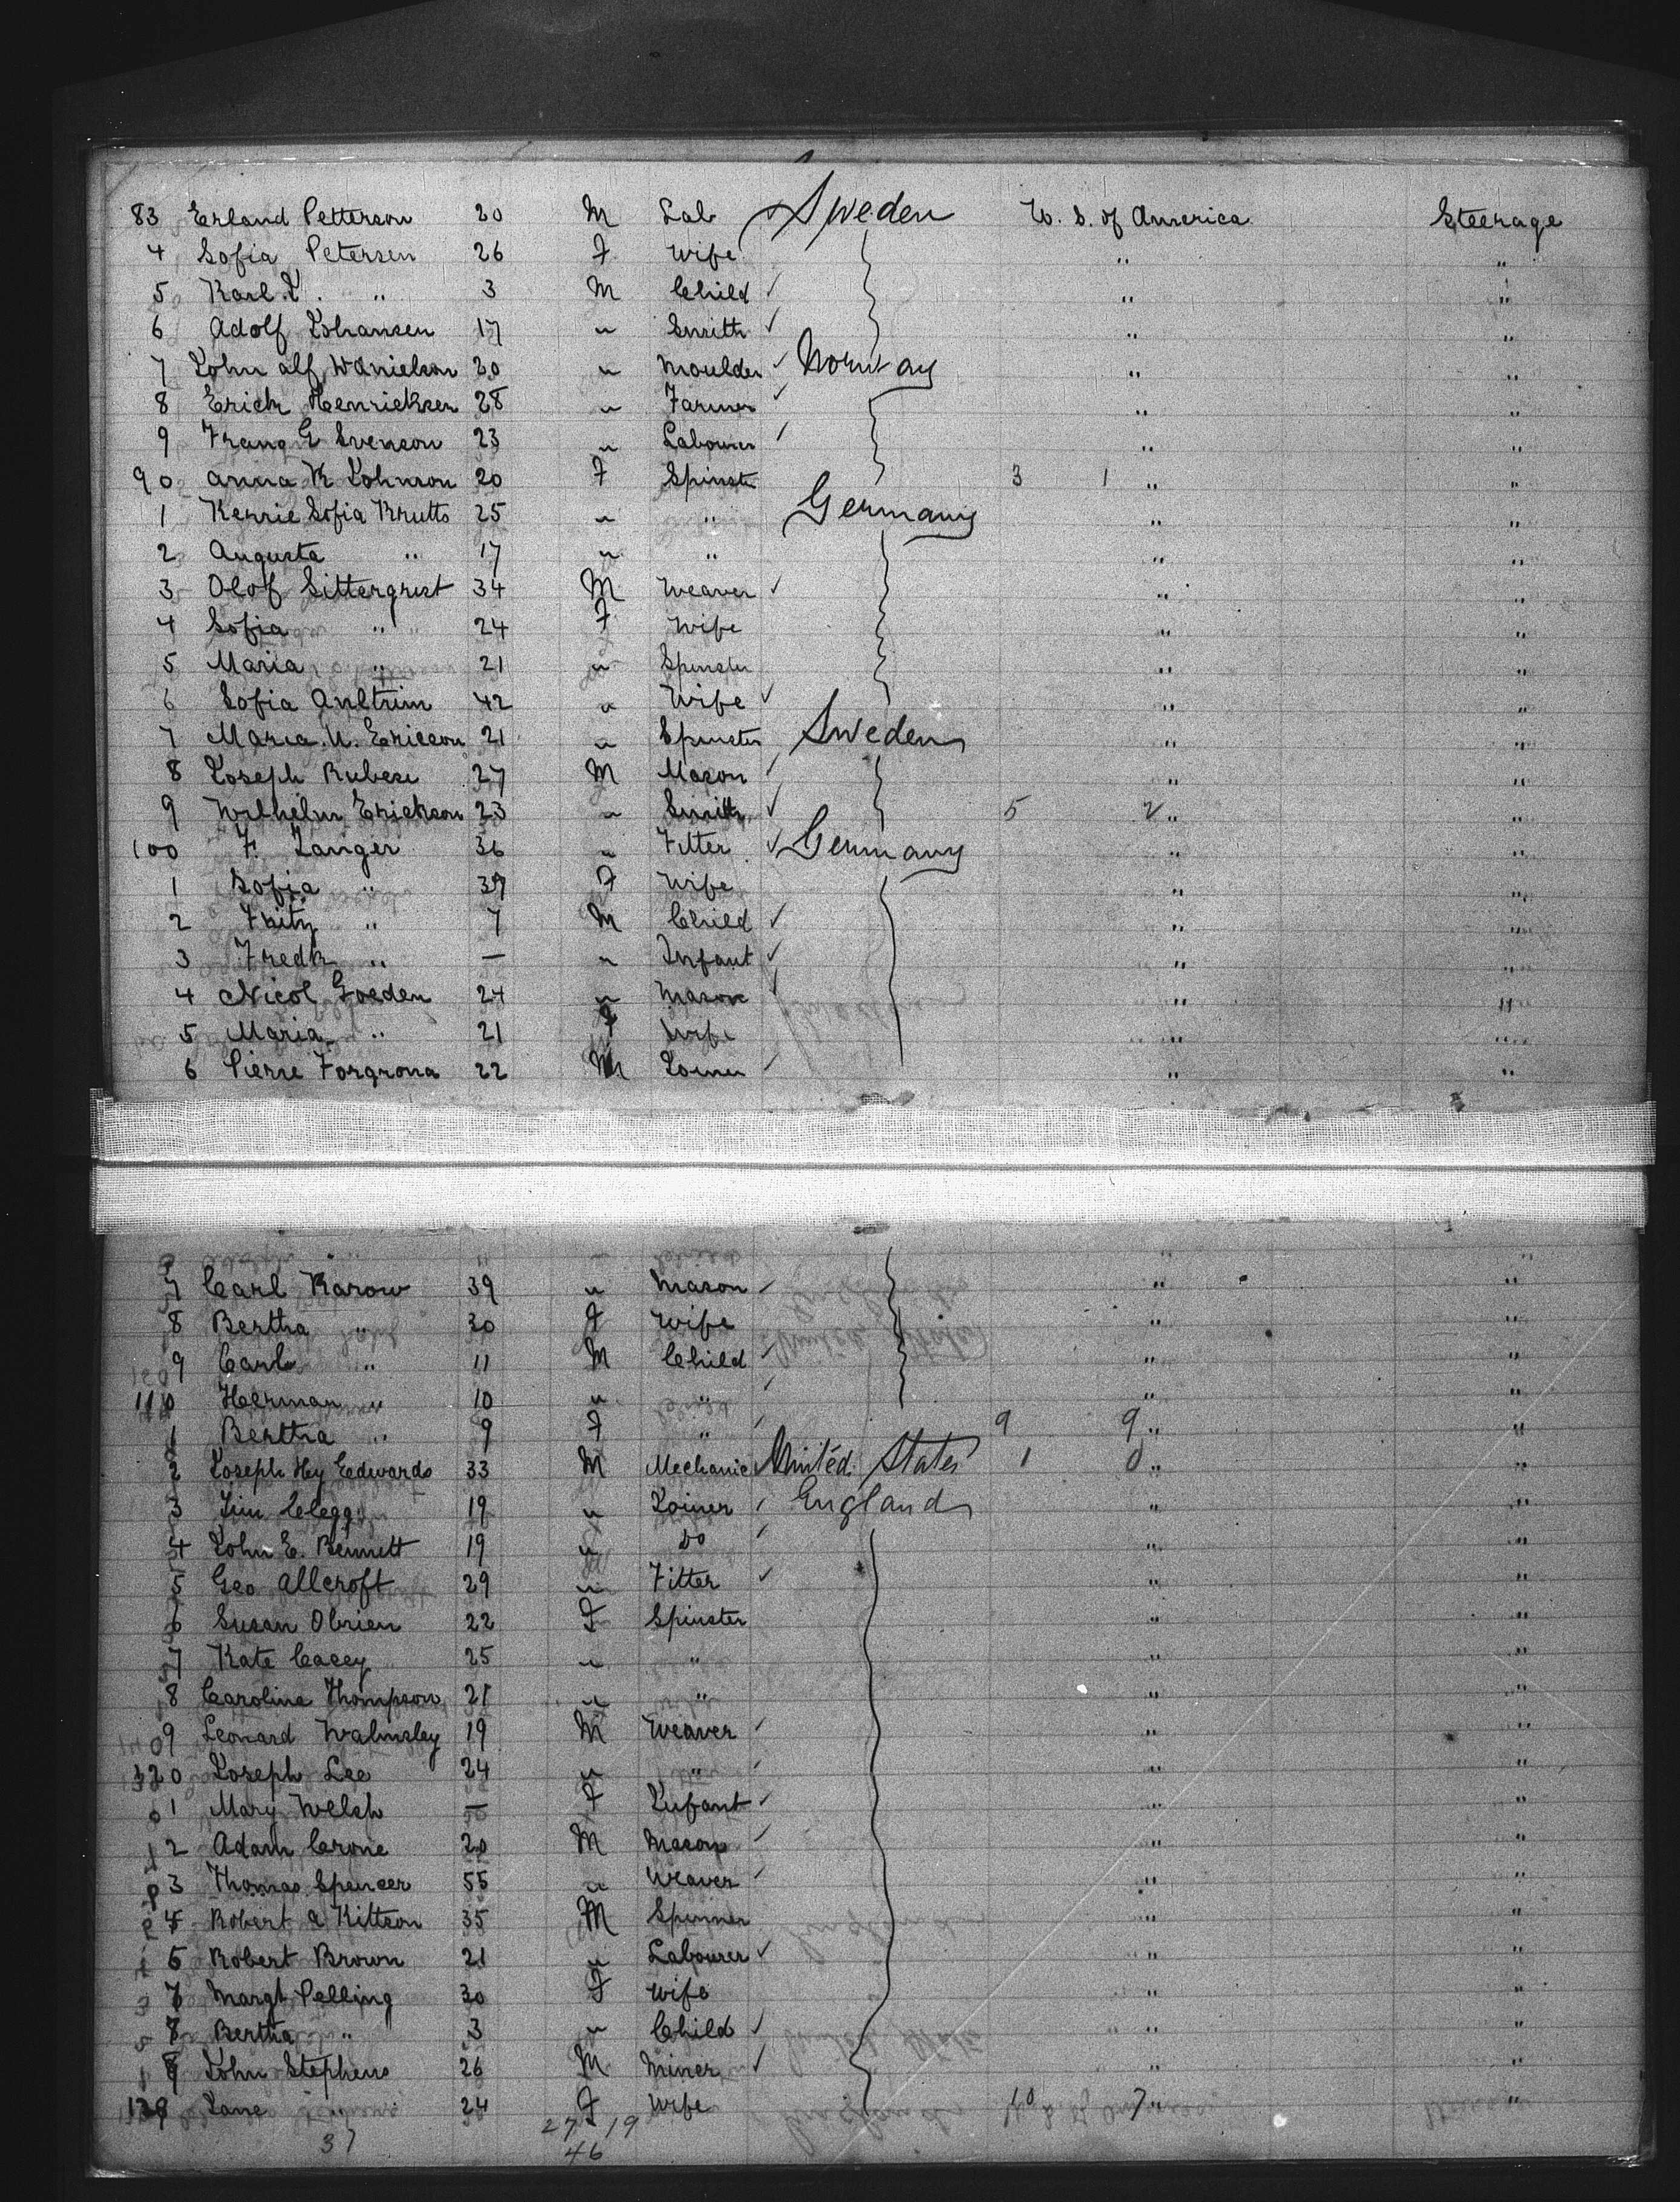 83 Erland Petterson 20 M Lab Sweden U. S. of America Steerage
4 Sofia Petersen 26 F Wife " "
5 Karl J. " 3 M Child " "
6 Adolf Johansen 17 " Smith " "
7 John Alf Danielson 20 " Moulder Norway " "
8 Erich Henricksen 28 " Farmer " "
9 Franz G Svenson 23 " Labourer " "
90 Anna K Johnson 20 F Spinster 3 1 " "
1 Kerrie Sofia Krutts 25 " " Germany " "
2 Augusta " 17 " " " "
3 Olof Sitterqvist 34 M Weaver " "
4 Sofia " 24 F Wife " "
5 Maria " 21 " Spinster " "
6 Sofia 42 " Wife " "
7 Maria U. Ericson 21 " Spinster Sweden " "
8 Joseph Rubese 27 M Mason " "
9 Wilhelm Erickson 23 " Smith 5 2 " "
100 F. Langer 36 " Fitter Germany " "
1 Sofia " 39 F Wife " "
2 Fritz " 7 M Child " "
3 Fredk " — " Infant " "
4 Nicol Goeden 24 " Mason " "
5 Maria " 21 F Wife " "
6 Pierre Forgrona 22 M Joiner " "
7 Carl Karow 39 " Mason " "
8 Bertha " 30 F Wife " "
9 Carl " 11 M Child " "
110 Herman " 10 " " " "
1 Bertha " 9 F " 9 9 " "
2 Joseph Hy Edwards 33 M Mechanic United States 1 0 " "
3 Jim Clegg 19 " Joiner England " "
4 John E. Bennett 19 " Do " "
5 Geo Allcroft 29 " Fitter " "
6 Susan Obrien 22 F Spinster " "
7 Kate Casey 25 " " " "
8 Caroline Thompson 21 " " " "
9 Leonard Walmsley 19 M Weaver " "
120 Joseph Lee 24 " " " "
1 Mary Welsh — F Infant " "
2 Adam Crone 20 M Mason " "
3 Thomas Spencer 55 " Weaver " "
4 Robert a Kittson 35 M Spinner " "
5 Robert Brown 21 " Labourer " "
7 Margt Pelling 30 F Wife " "
8 Bertha " 3 " Child " "
9 John Stephens 26 M Miner " "
129 Jane " 24 F Wife 10 7 " "
37 27 19
46